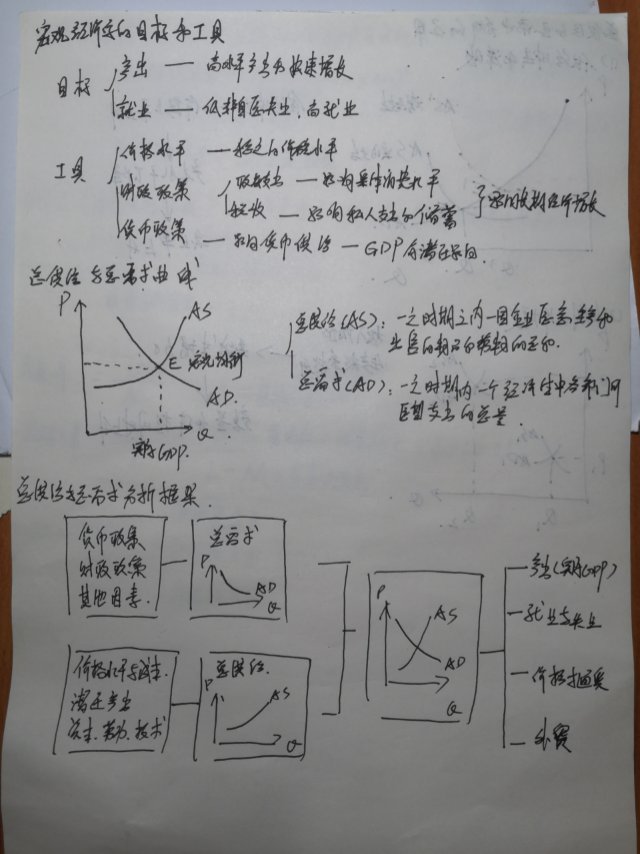 宏观经济学的目标和工具
目标
产出 — 高水平产出和快速增长
就业 — 低非自愿失业,高就业
工具
价格水平 — 稳定的价格水平
财政政策
政府支出 — 影响集体消费水平
税收 — 影响私人支出和储蓄
影响长期经济增长
货币政策 — 影响货币供给 — GDP和潜在
总供给与总需求曲线
P
AS
E 宏观均衡
AD
Q
实际GDP.
总供给(AS): 一定时期之内一国企业愿意
总需求(AD): 一定时期内一个经济中各部门
愿意支出的总量.
总供给与总需求分析框架.
货币政策
财政政策
其他因素.
总需求
P
AD
Q
价格水平与成本.
潜在产出
资本.劳动.技术
总供给.
P
AS
Q
P
AS
AD
Q
产出(实际GDP)
就业与失业
价格与通胀
外贸